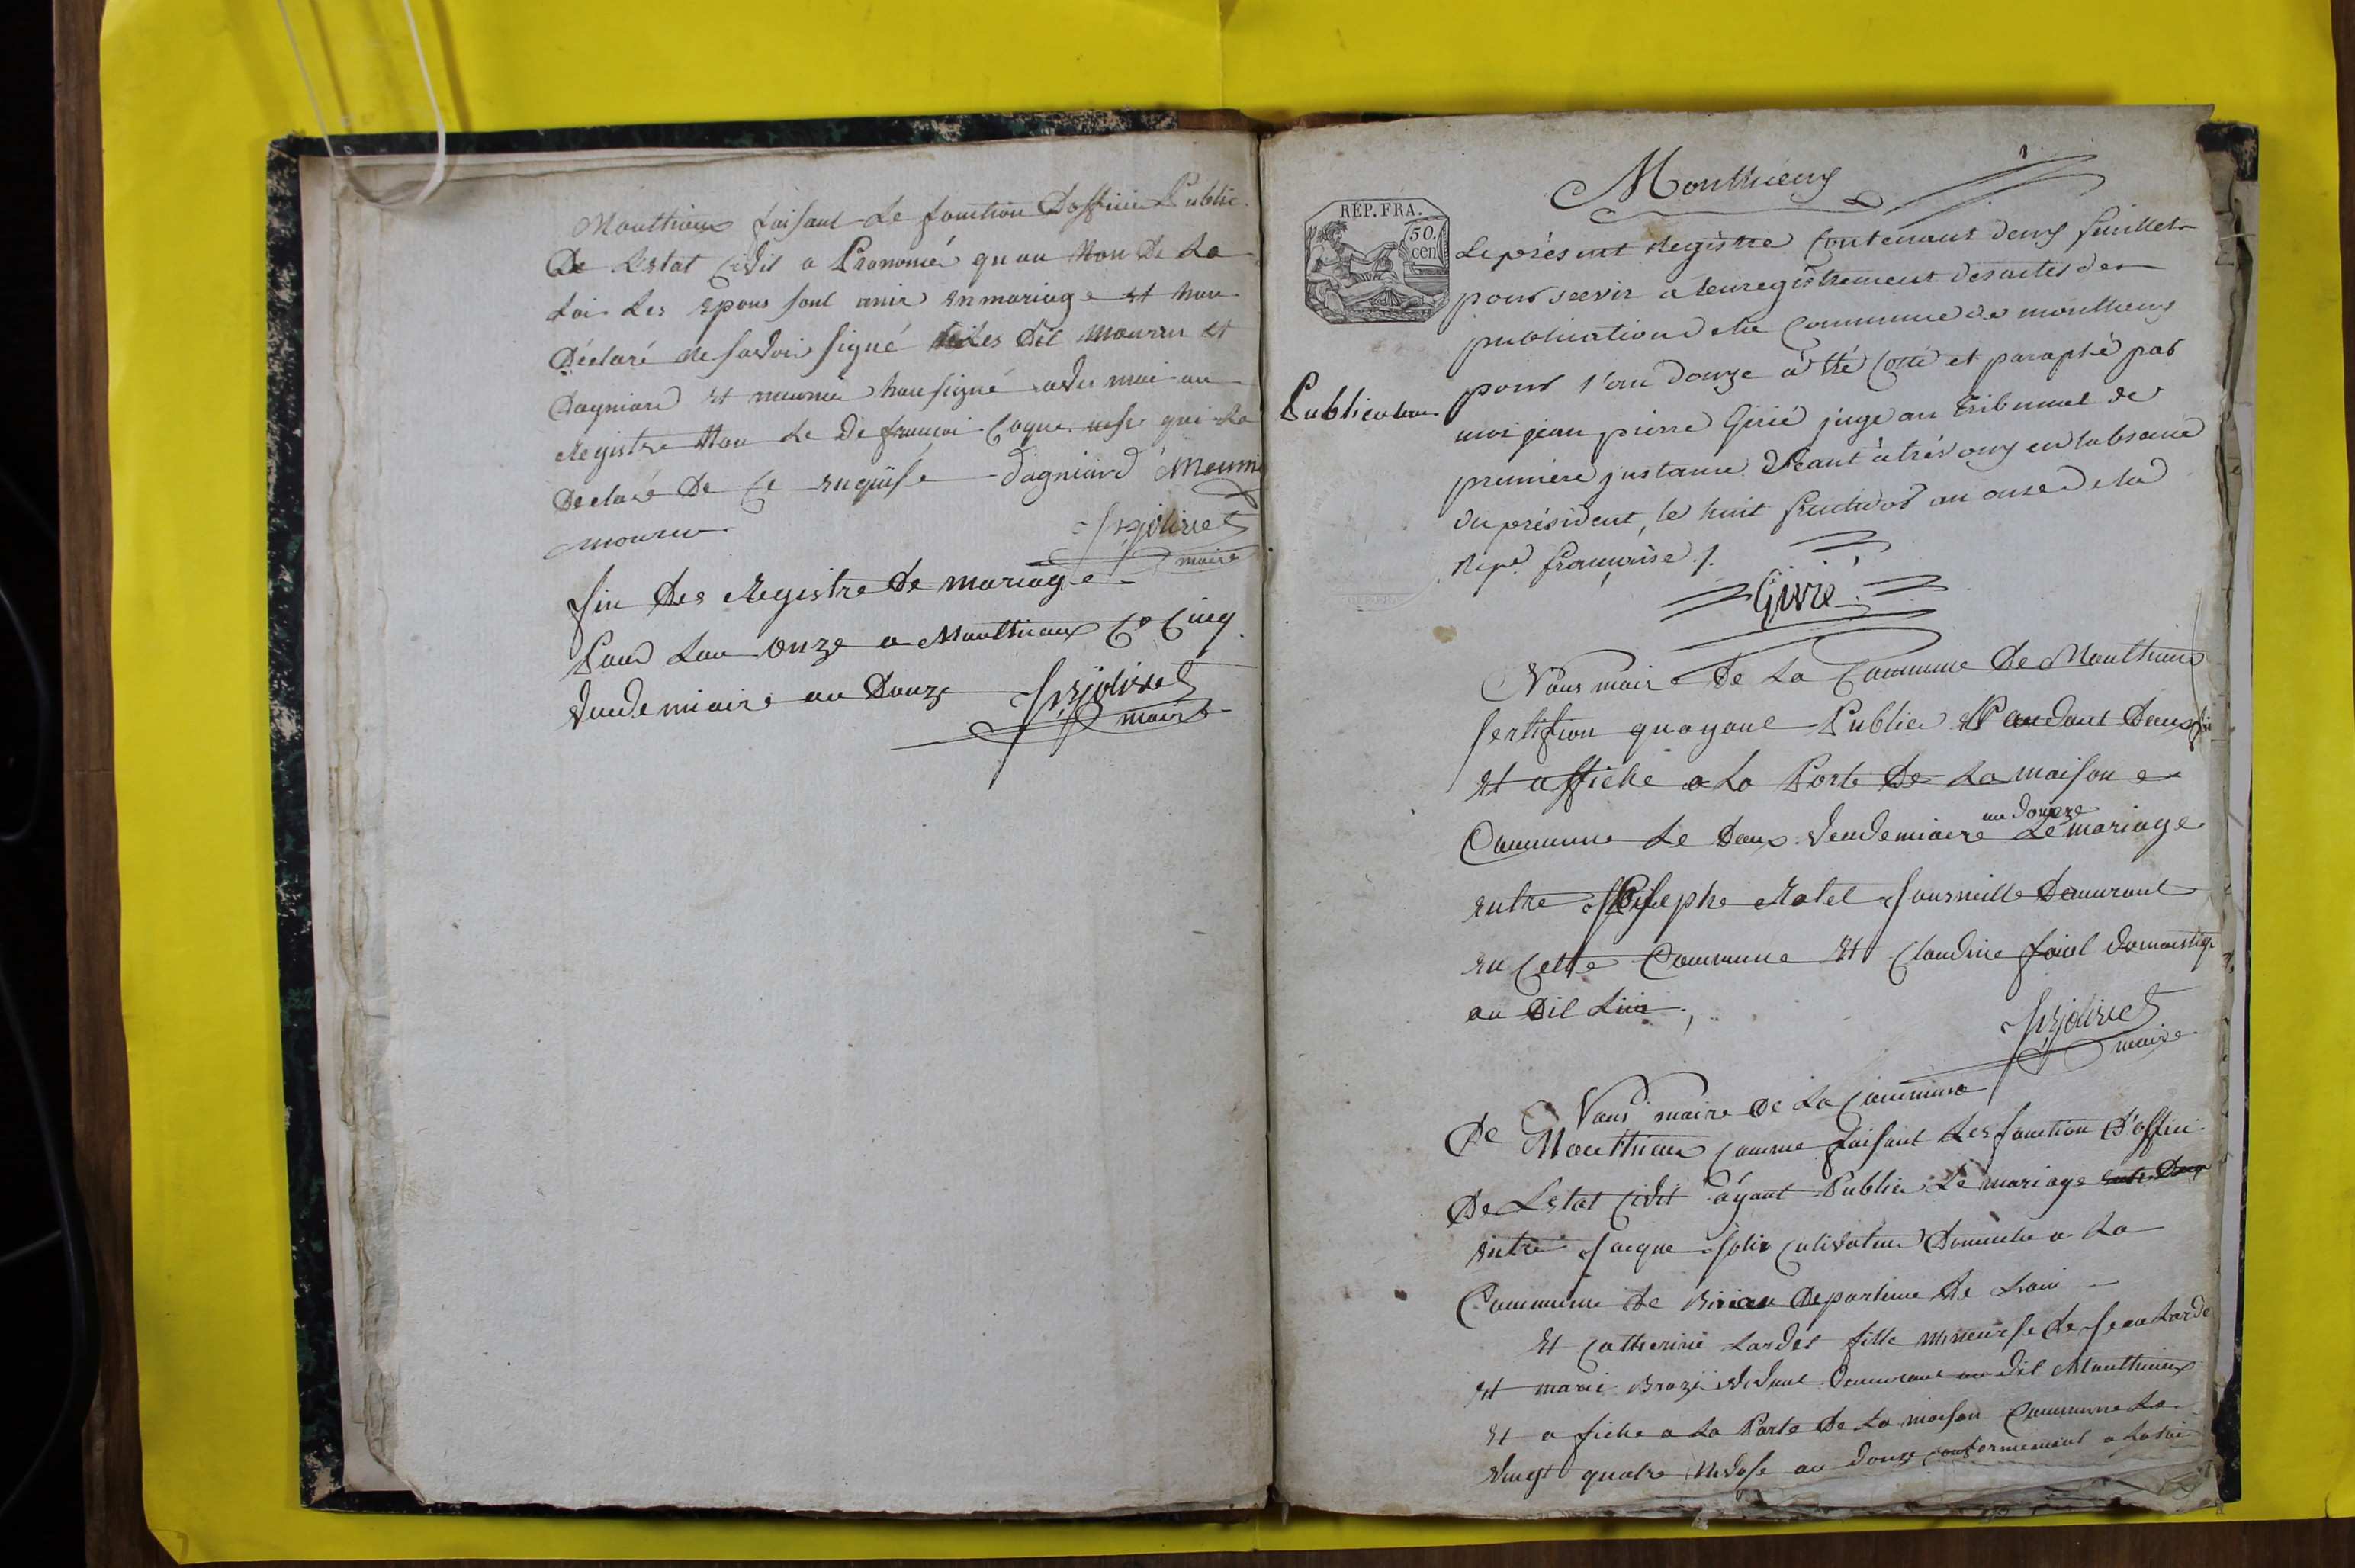 Monthieux faisant Le fonction Dofficié Public
De Lestat Cidil a Prononcé qu au Non De La
Loi Les Epous sont unir en mariage et non
Déclaré ne savoir signé Les Dit mourru et
Dagniard et meunié hon signé avec moi au
Registre Non Le De françoi qui La
Declaré De Ce enquise Dagniard Meunié
mourru
Jolivet
maire
fin Des Registre De mariage
Pour Lan onze a Monthieux Ce Cinq
Vendemiaire an Douze Jolivet
maire
Monthieux
1
REP. FRA.
50.
cen
Le présent Registre Contenant deux feuillets
pour servir a lenregistrement des actes des
publications de la Commune de monthieux
pour l'an douze à été Coté et paraphé par
Publication
moi jean pierre Girié juge au tribunal de
premiere justance Séant à trévoux en labsence
du président, le huit fructidor an onze de la
Repe. françaisse ./.
Girié
Nous maire De La Commune De Monthieux
sertifion quayant Publier Pandant Deux
et affiche a La Porte De La maison
Commune Le Deux Vendemiaire Le mariage
an douzeze
entre Josephe Rolet Journeille Demurant
en Cette Commune Et Claudine foul domestiq
au Dit Lieu
Jolivet
maire
Nous maire De La Commune
De Monthieux Comme faisant Les fonction D'offici
De Lestat Cidil ayant Publier Le mariage
entre Jacque Joli Cultivateur Demeulu a La
Commune de Departeme De Lain
Et Catherine Lardet fille mineurse de Jean Larde
et marie Demurant au dit Monthieux
Et a fiche a La Porte De La maison Commune Le
Vingt quatre Nivose an Douze Conformement a La Loi